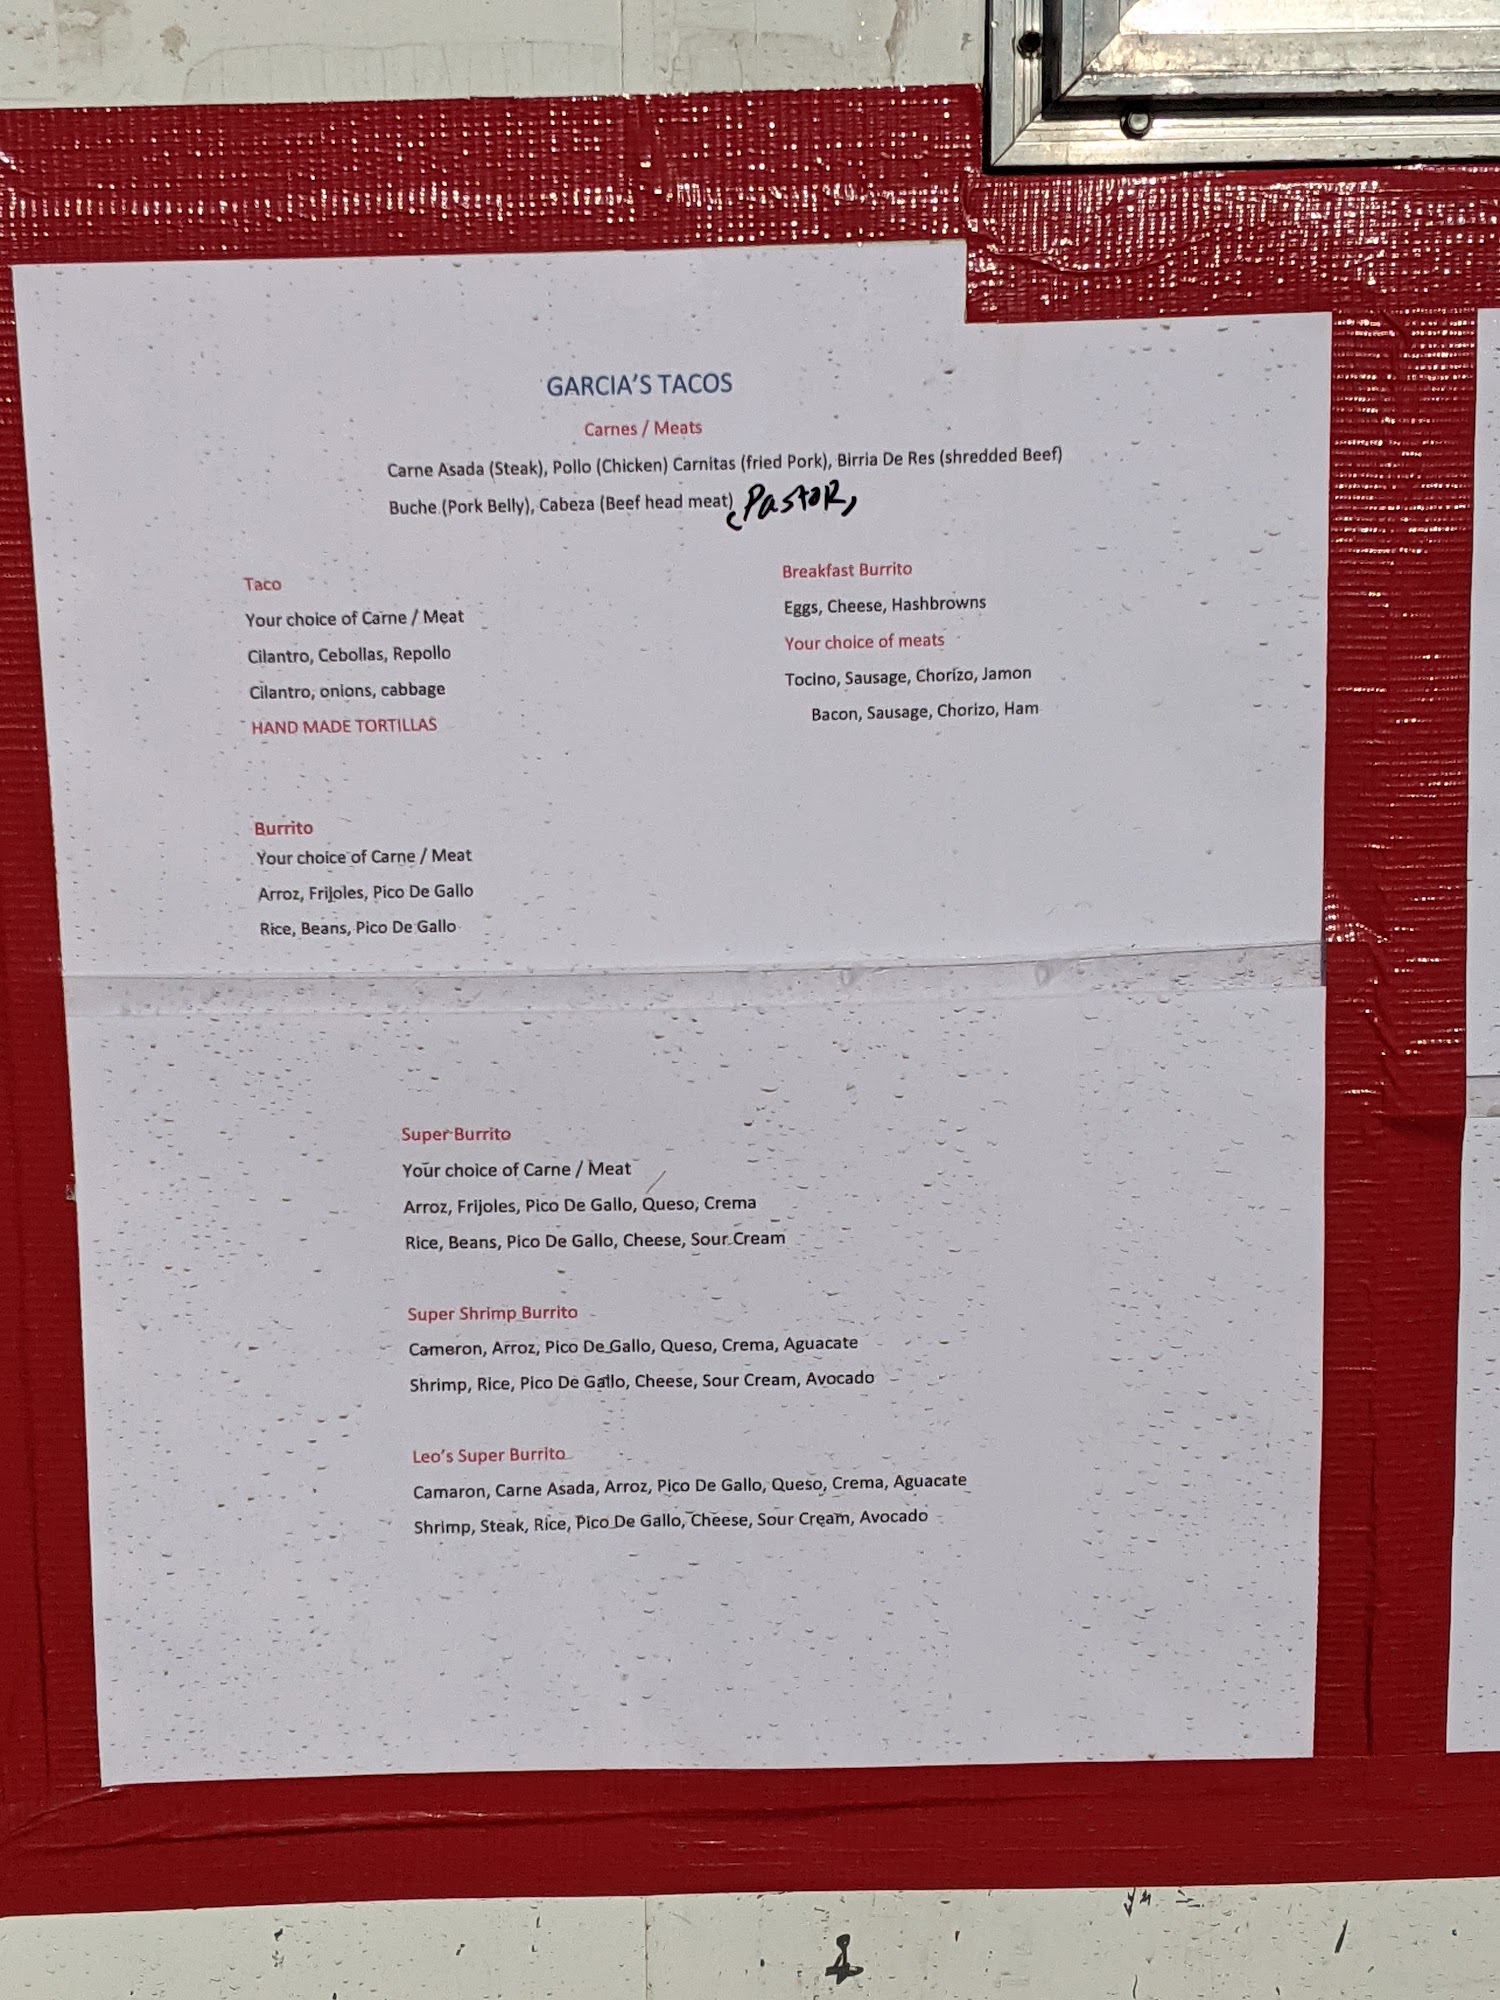 GARCIA'S TACOS
Carnes / Meats
Carne Asada (Steak), Pollo (Chicken) Carnitas (fried Pork), Birria De Res (shredded Beef)
Buche (Pork Belly), Cabeza (Beef head meat), Pastor,
Taco
Your choice of Carne / Meat
Cilantro, Cebollas, Repollo
Cilantro, onions, cabbage
HAND MADE TORTILLAS
Breakfast Burrito
Eggs, Cheese, Hashbrowns
Your choice of meats
Tocino, Sausage, Chorizo, Jamon
Bacon, Sausage, Chorizo, Ham
Burrito
Your choice of Carne / Meat
Arroz, Frijoles, Pico De Gallo
Rice, Beans, Pico De Gallo
Super Burrito
Your choice of Carne / Meat
Arroz, Frijoles, Pico De Gallo, Queso, Crema
Rice, Beans, Pico De Gallo, Cheese, Sour Cream
Super Shrimp Burrito
Cameron, Arroz, Pico De Gallo, Queso, Crema, Aguacate
Shrimp, Rice, Pico De Gallo, Cheese, Sour Cream, Avocado
Leo's Super Burrito
Camaron, Carne Asada, Arroz, Pico De Gallo, Queso, Crema, Aguacate
Shrimp, Steak, Rice, Pico De Gallo, Cheese, Sour Cream, Avocado